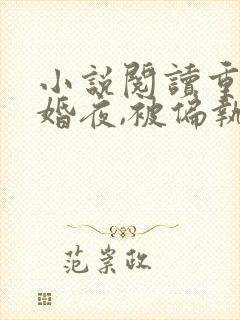 小說閱讀重
婚夜,被偏執
范崇政